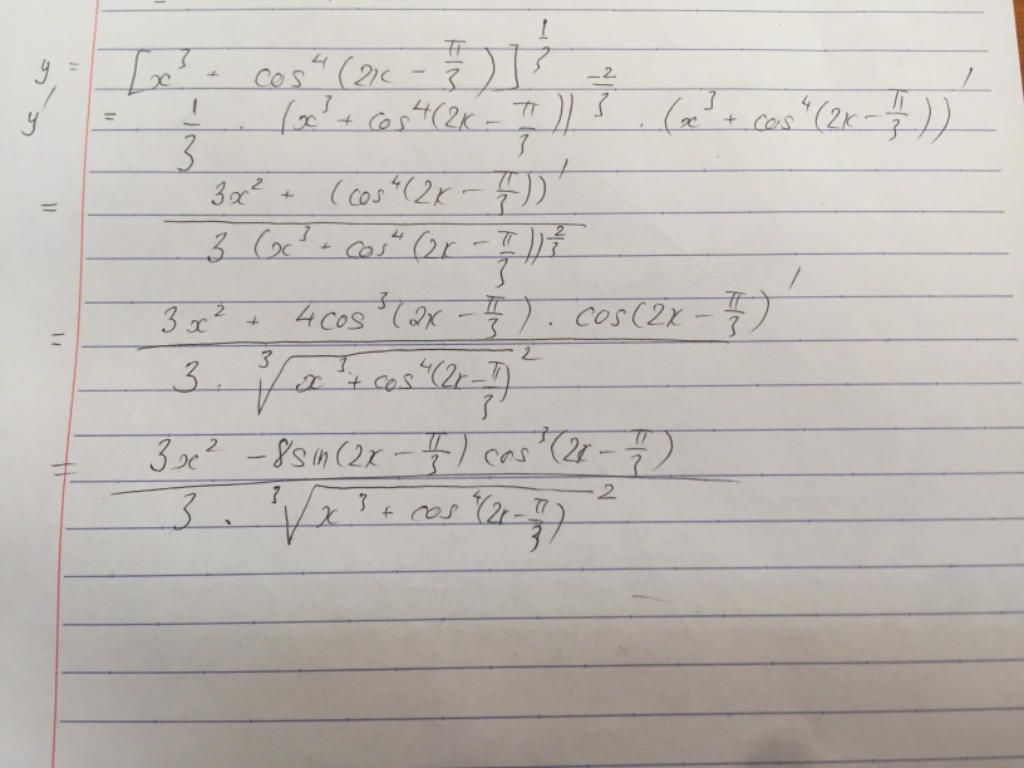 y = [x³ + cos⁴(2x - π/3)]^(1/3)
y' = 1/3 · (x³ + cos⁴(2x - π/3))^(-2/3) · (x³ + cos⁴(2x - π/3))'
= (3x² + (cos⁴(2x - π/3))') / (3 (x³ + cos⁴(2x - π/3))^(2/3))
= (3x² + 4cos³(2x - π/3) · cos(2x - π/3)') / (3 · ∛(x³ + cos⁴(2x - π/3))²)
= (3x² - 8sin(2x - π/3) cos³(2x - π/3)) / (3 · ∛(x³ + cos⁴(2x - π/3))²)